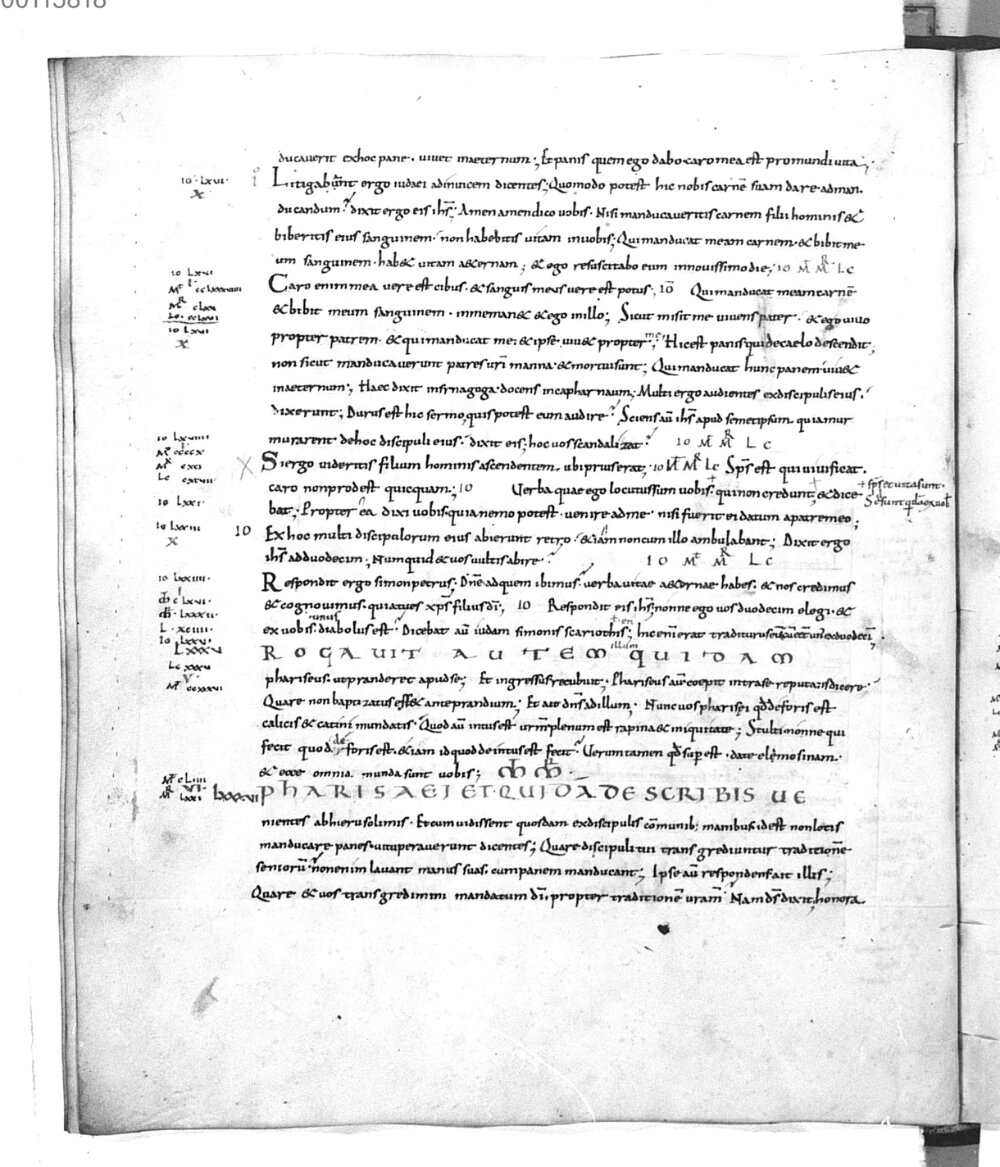 ducaverit exhoc pane · vivet inaeternum ; Et panis quem ego dabo caro mea est pro mundi vita ;
10 · Lxvi ·
X
Litigabant ergo iudaei adinvicem dicentes ; Quomodo potest hic nobis carnē suam dare adman
ducandum ? dixit ergo eis ihs ; Amen amen dico vobis · Nisi manducaveritis carnem filii hominis &
biberitis eius sanguinem · non habebitis vitam invobis ; Qui manducat meam carnem · & bibit me
um sanguinem · hab& vitam aeternam ; & ego resuscitabo eum innovissimo die ; 10 M̄ M̄R Lc
10 Lxvi
Caro enim mea vere est cibus · & sanguis meus vere est potus ; 10 Qui manducat meam carnē
& bibit meum sanguinem · inme man& & ego inillo ; Sicut misit me vivens pater · & ego vivo
10 Lxvi
X
propter patrem · & qui manducat me : & ipse viv& propter me ; Hic est panis qui decaelo descendit ;
non sicut manducaverunt patres vr̄i manna · & mortui sunt ; Qui manducat hunc panem viv&
inaeternum ; Haec dixit insynagoga · docens incapharnaum ; Multi ergo audientes exdiscipulis eius ·
dixerunt ; Durus est hic sermo, quis potest eum audire ? Sciens aū ihs apud semetipsum · quia mur
murarent dehoc discipuli eius · dixit eis ; hoc vos scandalizat ? 10 M̄ M̄R L c
X Si ergo videritis filium hominis ascendentem · ubi prius erat ; 10 M̄ M̄R Lc Sps̄ est qui vivificat ·
caro non prodest quicquam ; 10 Verba quae ego locutus sum vobis · qui non credunt ; & dice
+ sps̄ et vita sunt ·
bat ; Propter ea dixi vobis · quia nemo potest · venire adme · nisi fuerit ei datum apatre meo ;
10 Lxxii
X
10 Ex hoc multi discipulorum eius abierunt retro · & iam non cum illo ambulabant ; Dixit ergo
ihs̄ adduodecim ; Numquid & vos vultis abire ? 10 M̄ M̄R Lc
10 Lxxiiii ·
Respondit ergo simon petrus ; Dn̄e adquem ibimus ? verba vitae aeternae · habes · & nos credimus
& cognovimus · quia tu es xps̄ filius dī ; 10 Respondit eis ihs̄ ; nonne ego vos duodecim elegi · &
ex vobis · unus diabolus est ? Dicebat aū iudam simonis scariothis ;
ROGAVIT AUTEM illum QUIDAM
Lc xxxv
phariseus · ut pranderet apud se ; Et ingressus recubuit ; Phariseus aū coepit intra se reputans dicere ·
Quare non baptizatus ess& ante prandium ; Et ait dn̄s adillum ; Nunc vos pharisei qd deforis est
calicis & catini mundatis · Quod aū intus est vr̄m plenum est rapina & iniquitate ; Stulti nonne qui
fecit quod deforis est · & iam id quod deintus est fecit ? Verumtamen qd sup est · date elemosinam ·
& ecce omnia munda sunt vobis ;
PHARISAEI ET QUIDĀ DE SCRIBIS VE
nientes abhierusolimis · Et cum vidissent quosdam exdiscipulis cōmunib ; manibus · id est non lotis
manducare panes · vituperaverunt dicentes ; Quare discipuli tui transgrediuntur traditionē
seniorū ? non enim lavant manus suas · cum panem manducant ; Ipse aū respondens ait illis ;
Quare & vos transgredimini mandatum dī · propter traditionē vr̄am ? Nam ds̄ dixit ; honora